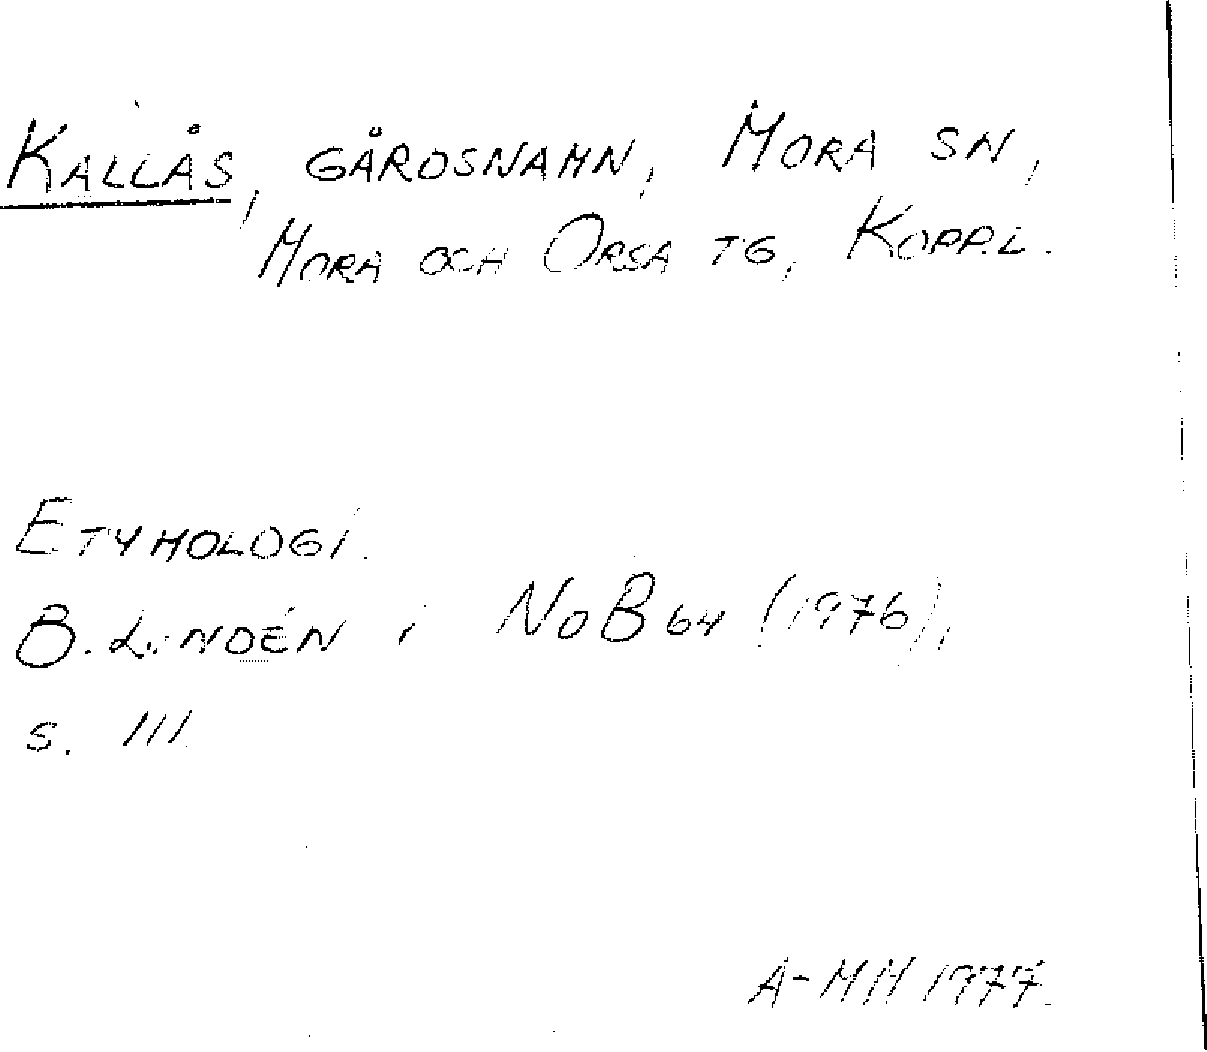 Kallås, gårdsnamn, Mora sn,
Mora och Orsa tg, Kopp.l.
Etymologi.
B. Lindén i NoB 64 (1976),
s. 111
A-MH 1977.